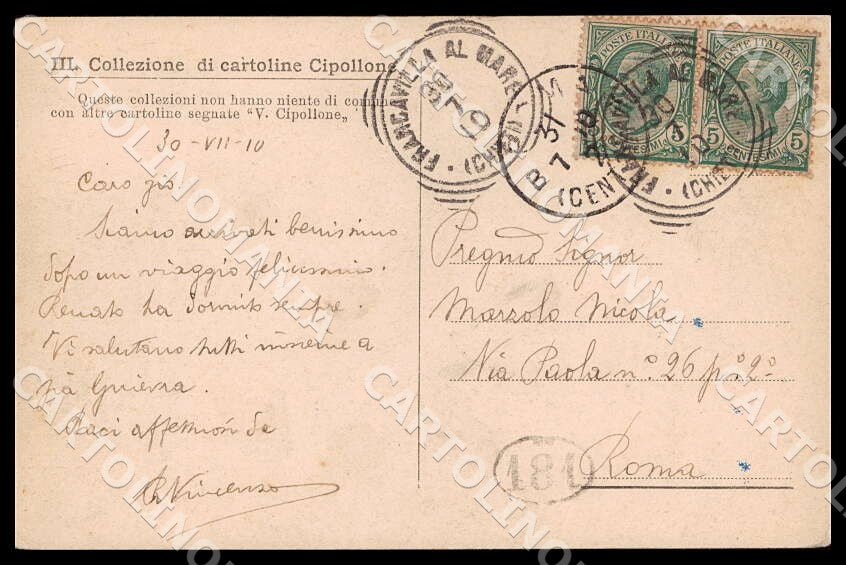 III. Collezione di cartoline Cipollone
Queste collezioni non hanno niente di comune
con altre cartoline segnate "V. Cipollone„
30-VII-10
Caro zio.
Siamo arrivati benissimo
dopo un viaggio felicissimo.
Renato ha dormito sempre.
Vi salutano tutti insieme a
zia
Baci affettuosi da
Vincenzo
FRANCAVILLA AL MARE
(CHIETI)
30 7 10
31
7
(CENT
FRANCAVILLA AL MARE
30
10
(CHIETI)
POSTE ITALIANE
5 CENTESIMI
POSTE ITALIANE
5 CENTESIMI 5
Pregmo Signor
Marzolo Nicola
Via Paola n.o 26 p.o 2o
Roma
181
CARTOLINOMANIA